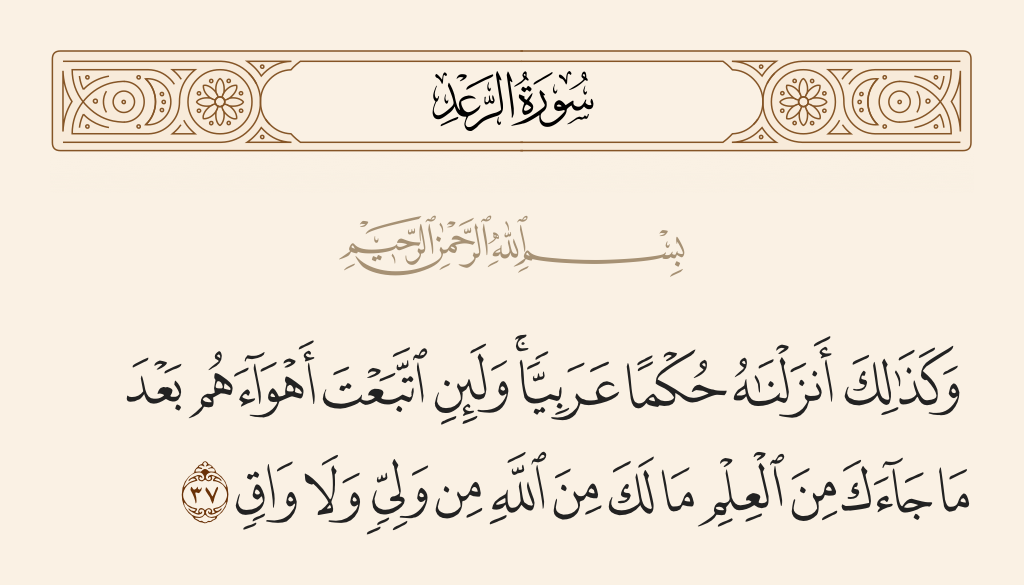 سُورَةُ الرَّعْدِ
بِسْمِ ٱللَّهِ ٱلرَّحْمَٰنِ ٱلرَّحِيمِ
وَكَذَٰلِكَ أَنزَلْنَـٰهُ حُكْمًا عَرَبِيًّا ۚ وَلَئِنِ ٱتَّبَعْتَ أَهْوَآءَهُم بَعْدَ
مَا جَآءَكَ مِنَ ٱلْعِلْمِ مَا لَكَ مِنَ ٱللَّهِ مِن وَلِىٍّ وَلَا وَاقٍ ٣٧